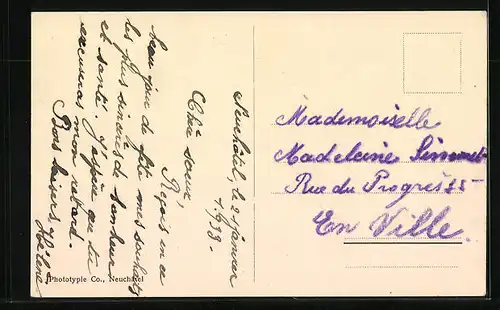 Neuchâtel, le 2 janvier
1938.
Chère sœur,
Reçois en ce
beau jour de fête mes souhaits
les plus sincères de bonheur
et santé. J'espère que tu
excuseras mon retard.
Bons baisers, Hélène
Mademoiselle
Madeleine
Rue du Progrès
En Ville.
Phototypie Co., Neuchâtel